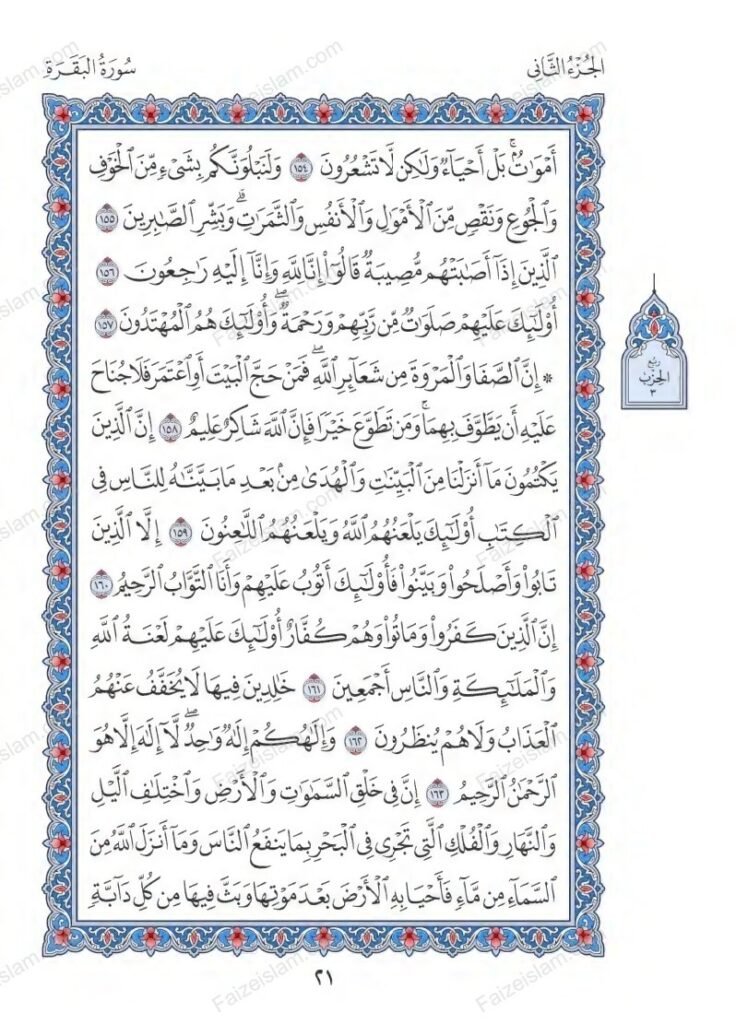 الجُزْءُ الثَّانِي
سُورَةُ البَقَرَةِ
أَمْوَٰتٌۢۚ بَلْ أَحْيَآءٌ وَلَٰكِن لَّا تَشْعُرُونَ ١٥٤ وَلَنَبْلُوَنَّكُم بِشَىْءٍ مِّنَ ٱلْخَوْفِ
وَٱلْجُوعِ وَنَقْصٍ مِّنَ ٱلْأَمْوَٰلِ وَٱلْأَنفُسِ وَٱلثَّمَرَٰتِۗ وَبَشِّرِ ٱلصَّٰبِرِينَ ١٥٥
ٱلَّذِينَ إِذَآ أَصَٰبَتْهُم مُّصِيبَةٌ قَالُوٓا۟ إِنَّا لِلَّهِ وَإِنَّآ إِلَيْهِ رَٰجِعُونَ ١٥٦
أُو۟لَٰٓئِكَ عَلَيْهِمْ صَلَوَٰتٌ مِّن رَّبِّهِمْ وَرَحْمَةٌۖ وَأُو۟لَٰٓئِكَ هُمُ ٱلْمُهْتَدُونَ ١٥٧
* إِنَّ ٱلصَّفَا وَٱلْمَرْوَةَ مِن شَعَآئِرِ ٱللَّهِۖ فَمَنْ حَجَّ ٱلْبَيْتَ أَوِ ٱعْتَمَرَ فَلَا جُنَاحَ
عَلَيْهِ أَن يَطَّوَّفَ بِهِمَاۚ وَمَن تَطَوَّعَ خَيْرًا فَإِنَّ ٱللَّهَ شَاكِرٌ عَلِيمٌ ١٥٨ إِنَّ ٱلَّذِينَ
يَكْتُمُونَ مَآ أَنزَلْنَا مِنَ ٱلْبَيِّنَٰتِ وَٱلْهُدَىٰ مِنۢ بَعْدِ مَا بَيَّنَّٰهُ لِلنَّاسِ فِى
ٱلْكِتَٰبِ أُو۟لَٰٓئِكَ يَلْعَنُهُمُ ٱللَّهُ وَيَلْعَنُهُمُ ٱللَّٰعِنُونَ ١٥٩ إِلَّا ٱلَّذِينَ
تَابُوا۟ وَأَصْلَحُوا۟ وَبَيَّنُوا۟ فَأُو۟لَٰٓئِكَ أَتُوبُ عَلَيْهِمْ وَأَنَا ٱلتَّوَّابُ ٱلرَّحِيمُ ١٦٠
إِنَّ ٱلَّذِينَ كَفَرُوا۟ وَمَاتُوا۟ وَهُمْ كُفَّارٌ أُو۟لَٰٓئِكَ عَلَيْهِمْ لَعْنَةُ ٱللَّهِ
وَٱلْمَلَٰٓئِكَةِ وَٱلنَّاسِ أَجْمَعِينَ ١٦١ خَٰلِدِينَ فِيهَا لَا يُخَفَّفُ عَنْهُمُ
ٱلْعَذَابُ وَلَا هُمْ يُنظَرُونَ ١٦٢ وَإِلَٰهُكُمْ إِلَٰهٌ وَٰحِدٌۖ لَّآ إِلَٰهَ إِلَّا هُوَ
ٱلرَّحْمَٰنُ ٱلرَّحِيمُ ١٦٣ إِنَّ فِى خَلْقِ ٱلسَّمَٰوَٰتِ وَٱلْأَرْضِ وَٱخْتِلَٰفِ ٱلَّيْلِ
وَٱلنَّهَارِ وَٱلْفُلْكِ ٱلَّتِى تَجْرِى فِى ٱلْبَحْرِ بِمَا يَنفَعُ ٱلنَّاسَ وَمَآ أَنزَلَ ٱللَّهُ مِنَ
ٱلسَّمَآءِ مِن مَّآءٍ فَأَحْيَا بِهِ ٱلْأَرْضَ بَعْدَ مَوْتِهَا وَبَثَّ فِيهَا مِن كُلِّ دَآبَّةٍ
رُبع
الحِزْب
٣
٢١
Faizeislam.com